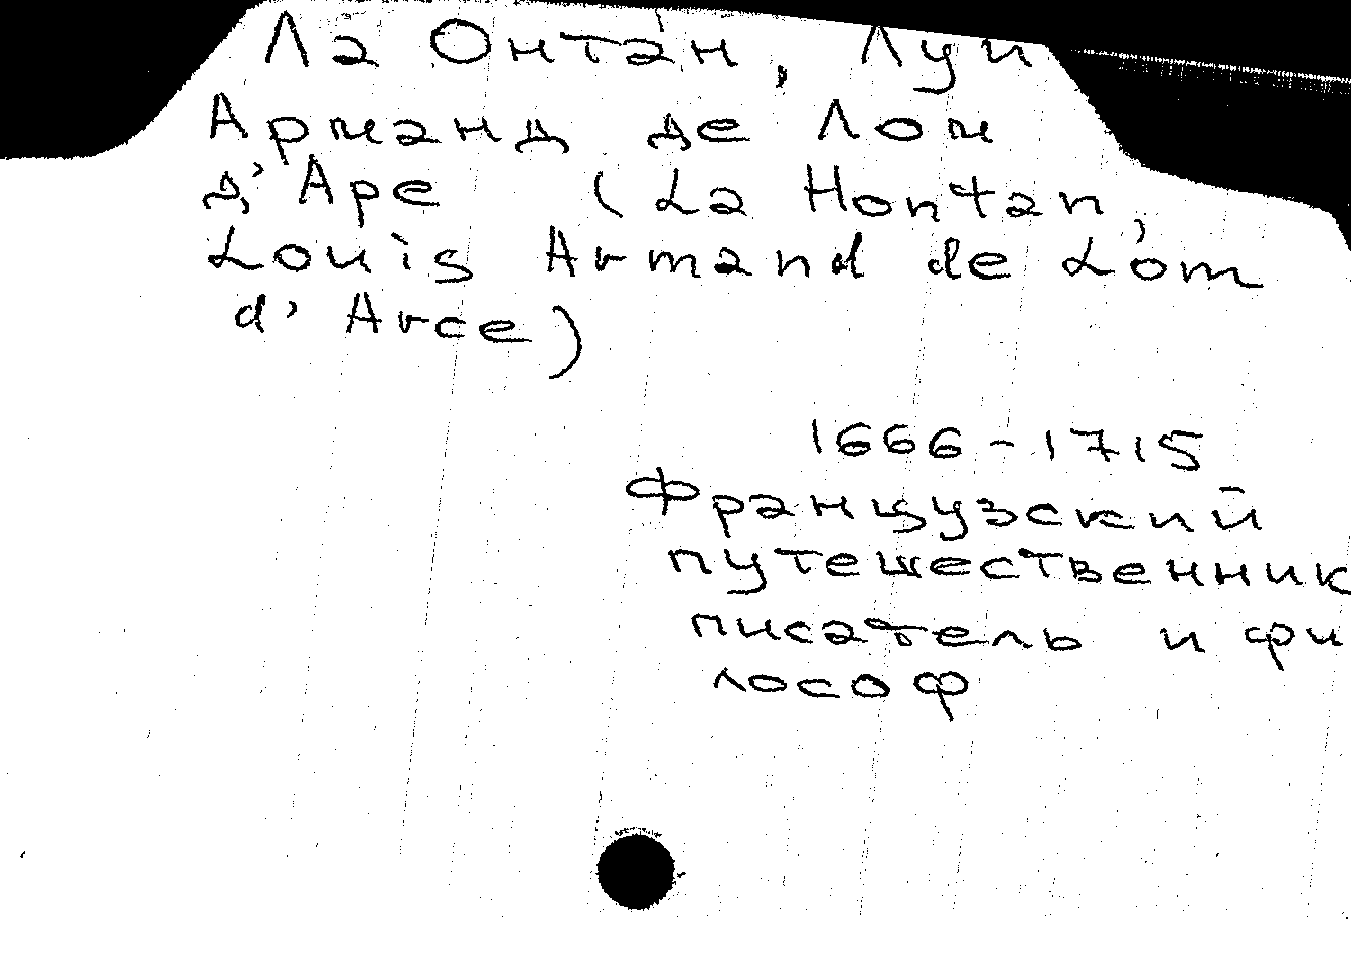 Ла Онтан, Луи
Арманд де Лом
д'Аре (La Hontan,
Louis Armand de L'om
d'Arce)
1666-1715
Французский
путешественник
писатель и фи
лософ